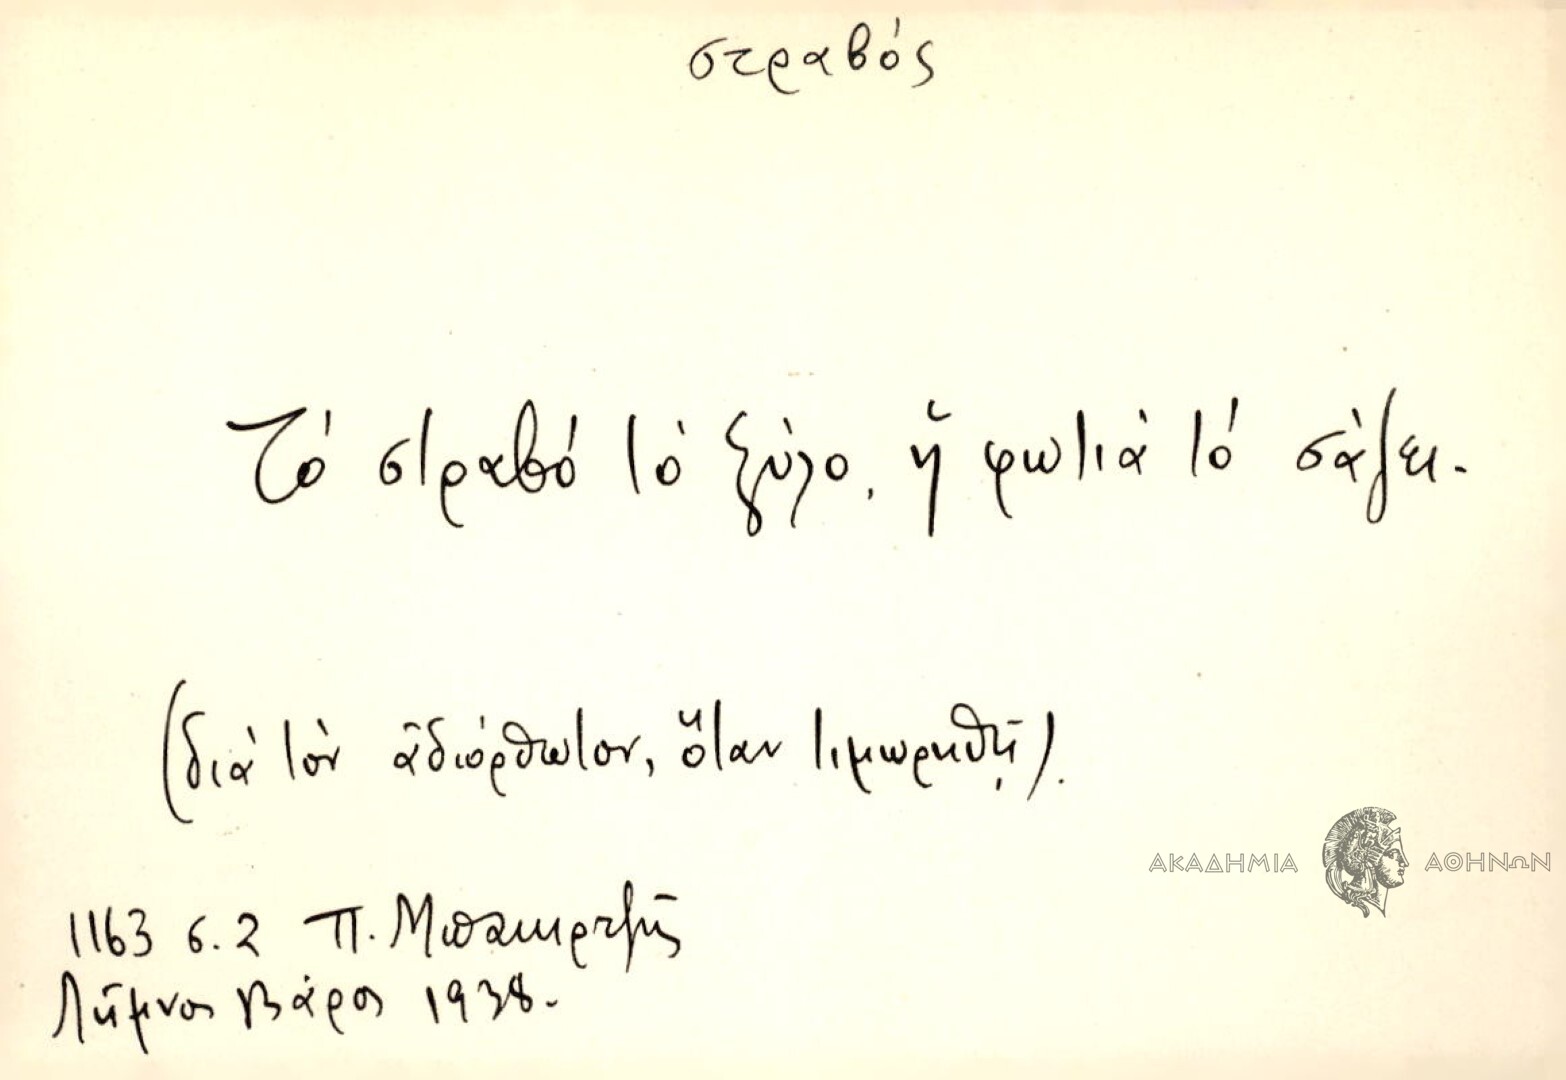 στραβός
Τό στραβό τό ξύλο, ἡ φωτιά τό σάζει.
(διά τόν ἀδιόρθωτον, ὅταν τιμωρηθῇ).
ΑΚΑΔΗΜΙΑ ΑΘΗΝΩΝ
1163 σ. 2 Π. Μπακιρτζῆς
Λῆμνος Βάρος 1938.